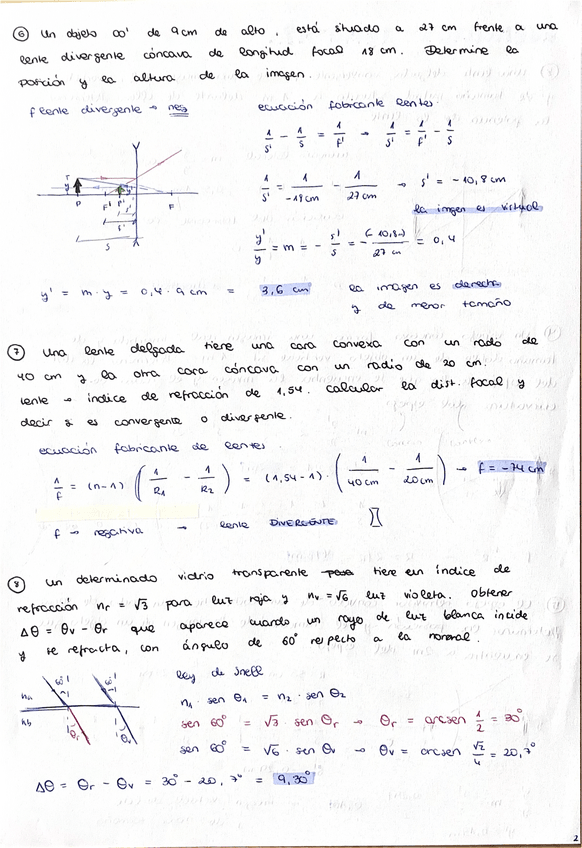 ⑥ Un objeto OO' de 9cm de alto, está situado a 27 cm frente a una
lente divergente cóncava de longitud focal 18 cm. Determine la
posición y la altura de la imagen.
f lente divergente → neg
ecuación fabricante lentes.
1/s' - 1/s = 1/f' → 1/s' = 1/f' - 1/s
1/s' = 1/-18cm - 1/27cm → s' = -10,8 cm
la imgen es virtual
y'/y = m = - s'/s = - (-10,8)/27 cm = 0,4
y' = m · y = 0,4 · 9 cm = 3,6 cm
la imagen es derecha
y de menor tamaño
T
y
P
F'
P'
F
f'
s
⑦ Una lente delgada tiene una cara convexa con un radio de
40 cm y la otra cara cóncava con un radio de 20 cm.
lente → índice de refracción de 1,54. calcular la dist. focal y
decir si es convergente o divergente.
ecuación fabricante de lentes.
1/f = (n-1) (1/R1 - 1/R2) = (1,54-1) · (1/40cm - 1/20cm) → f = -74 cm
f → negativa → lente DIVERGENTE
⑧ Un determinado vidrio transparente tiene un índice de
refracción nr = √3 para luz roja y nv = √6 luz violeta. Obtener
Δθ = θv - θr que aparece cuando un rayo de luz blanca incide
y se refracta, con ángulo de 60° respecto a la normal.
ley de Snell
n1 · sen θ1 = n2 · sen θ2
sen 60° = √3 sen θr → θr = arcsen 1/2 = 30°
sen 60° = √6 · sen θv → θv = arcsen √2/4 = 20,7°
na
nb
60°
60°
θr
θv
Δθ = θr - θv = 30° - 20,7° = 9,30°
2